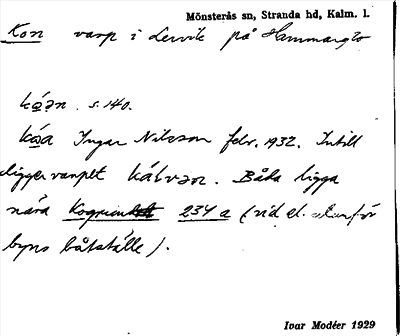 Mönsterås sn, Stranda hd, Kalm. l.
Kon varp i Lervik på Hammarglo
kóən. s. 140.
kóa Ingar Nilsson febr. 1932. Intill
ligger varpet kálvən. Båda ligga
nära 234 a (vid el. utanför
byns båtställe).
Ivar Modéer 1929